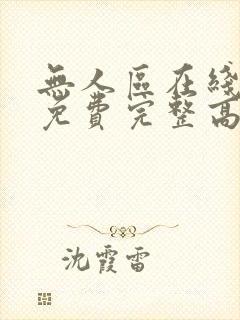 無人區在綫
免費完整高
沈霞雷